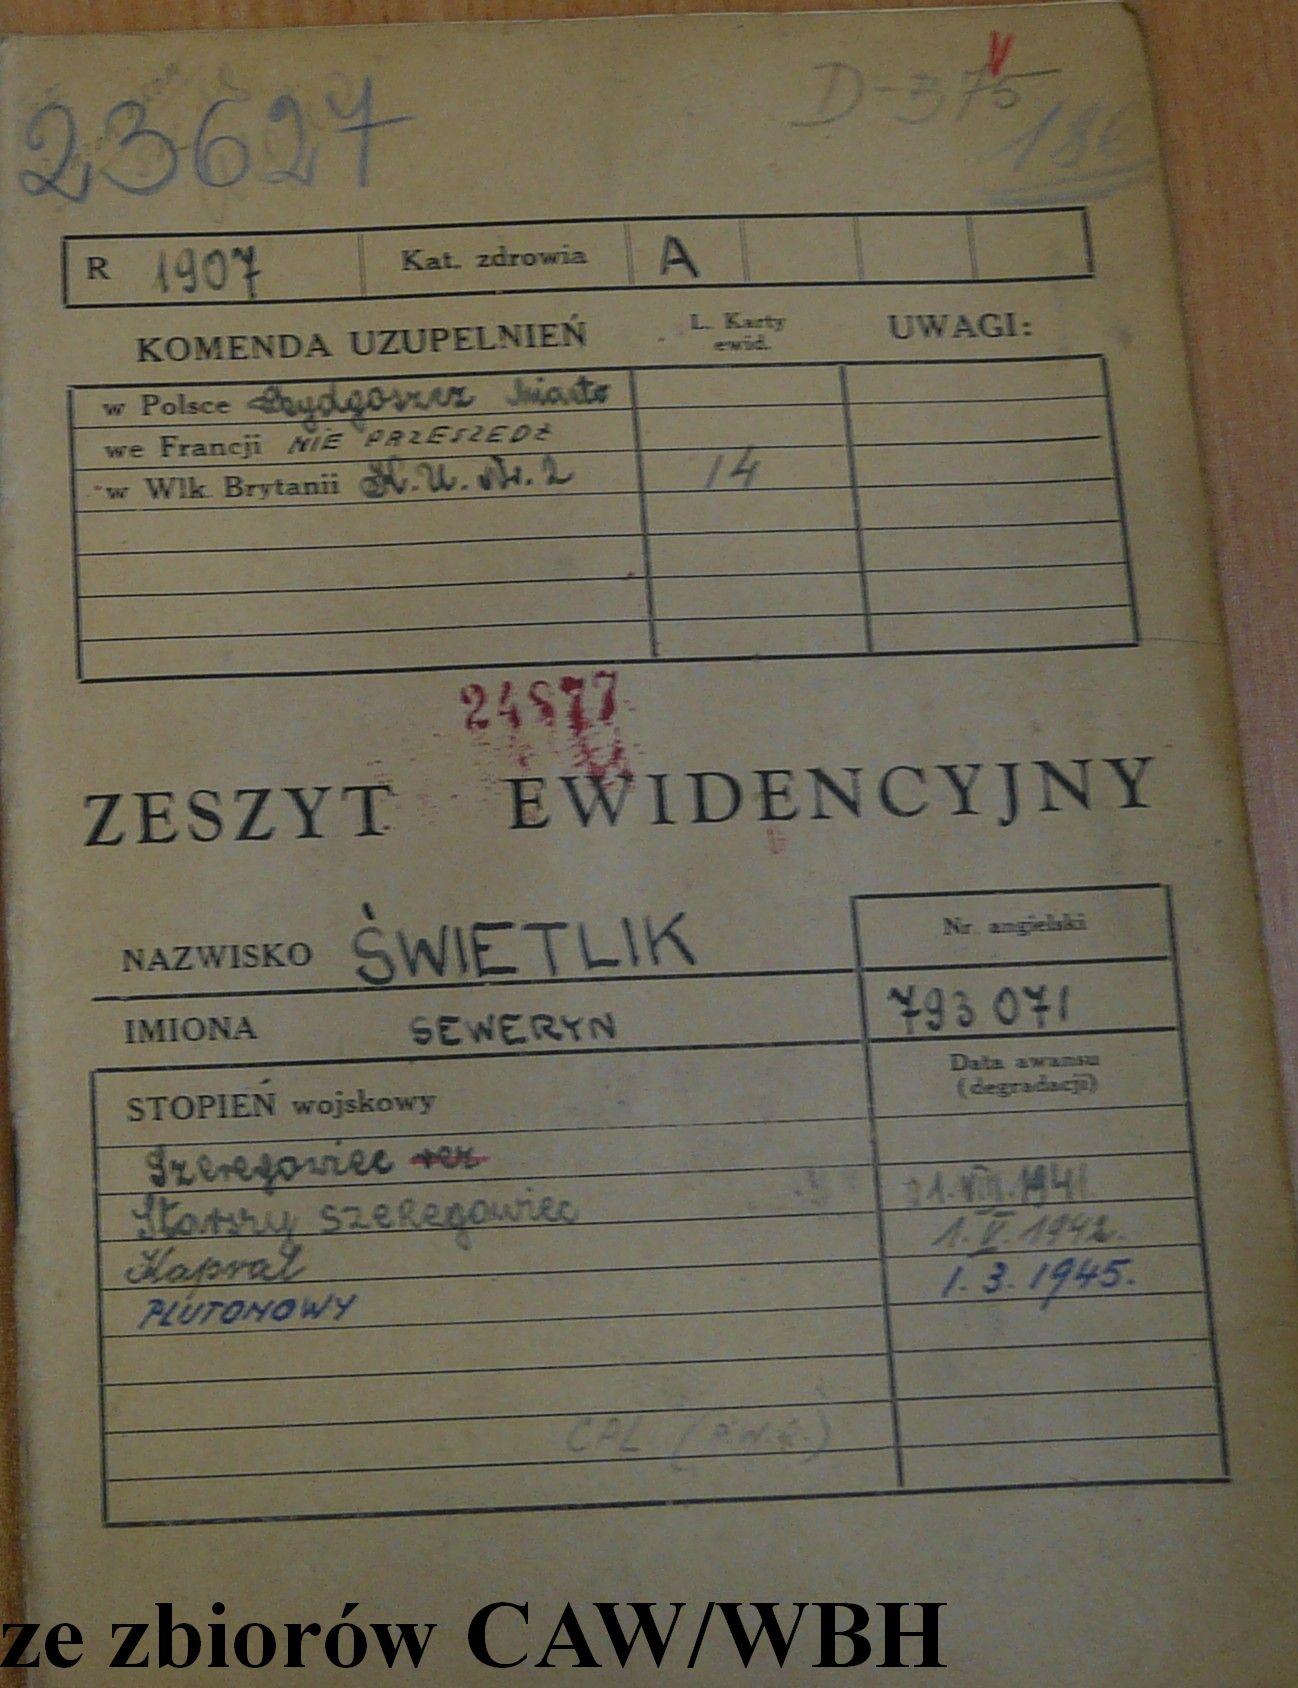 23627
D-375
186
R 1907 Kat. zdrowia A
KOMENDA UZUPEŁNIEŃ L. Karty ewid. UWAGI:
w Polsce Bydgoszcz Miasto
we Francji NIE PRZESZEDŁ
w Wlk. Brytanii K.U. Nr. 2 14
24877
ZESZYT EWIDENCYJNY
NAZWISKO ŚWIETLIK Nr. angielski
IMIONA SEWERYN 793 071
STOPIEŃ wojskowy Data awansu (degradacji)
Szeregowiec rez
Starszy szeregowiec 1.VIII.1941
Kapral 1.V.1942.
PLUTONOWY 1.3.1945.
CPL
ze zbiorów CAW/WBH